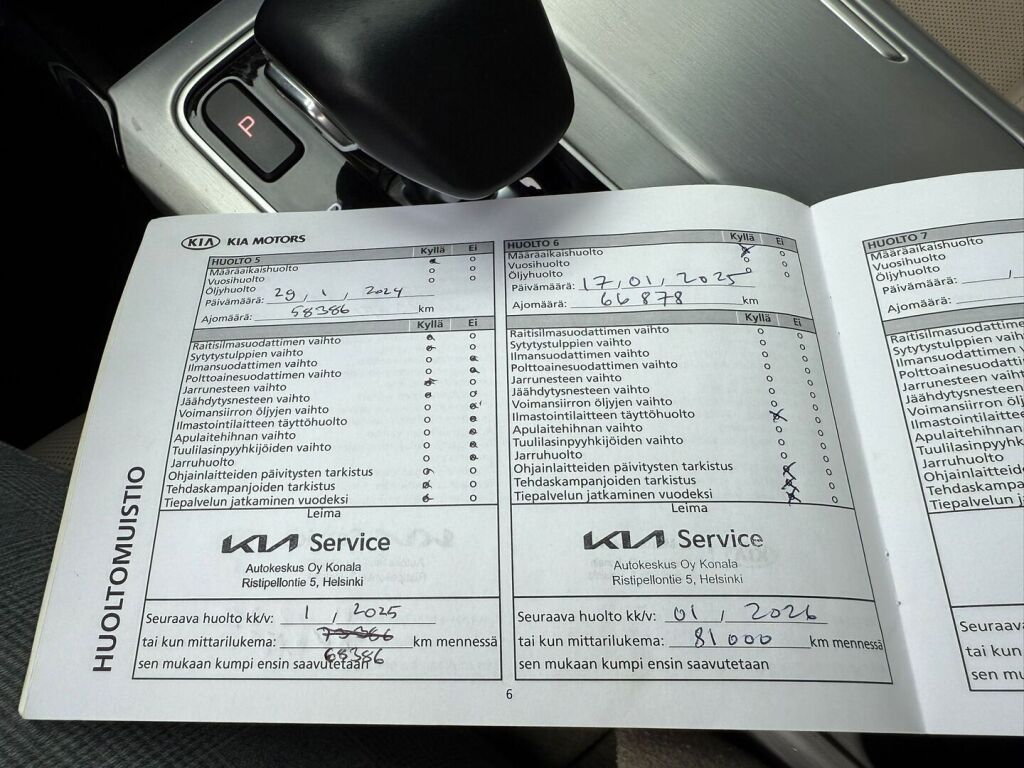 P
KIA KIA MOTORS
HUOLTOMUISTIO
HUOLTO 5 Kyllä Ei
Määräaikaishuolto
Vuosihuolto
Öljyhuolto
Päivämäärä: 29, 1, 2024
Ajomäärä: 58386 km
Kyllä Ei
Raitisilmasuodattimen vaihto
Sytytystulppien vaihto
Ilmansuodattimen vaihto
Polttoainesuodattimen vaihto
Jarrunesteen vaihto
Jäähdytysnesteen vaihto
Voimansiirron öljyjen vaihto
Ilmastointilaitteen täyttöhuolto
Apulaitehihnan vaihto
Tuulilasinpyyhkijöiden vaihto
Jarruhuolto
Ohjainlaitteiden päivitysten tarkistus
Tehdaskampanjoiden tarkistus
Tiepalvelun jatkaminen vuodeksi
Leima
KIA Service
Autokeskus Oy Konala
Ristipellontie 5, Helsinki
Seuraava huolto kk/v: 1, 2025
tai kun mittarilukema: 73386 km mennessä
68386
sen mukaan kumpi ensin saavutetaan
HUOLTO 6 Kyllä Ei
Määräaikaishuolto
Vuosihuolto
Öljyhuolto
Päivämäärä: 17, 01, 2025
Ajomäärä: 66 878 km
Kyllä Ei
Raitisilmasuodattimen vaihto
Sytytystulppien vaihto
Ilmansuodattimen vaihto
Polttoainesuodattimen vaihto
Jarrunesteen vaihto
Jäähdytysnesteen vaihto
Voimansiirron öljyjen vaihto
Ilmastointilaitteen täyttöhuolto
Apulaitehihnan vaihto
Tuulilasinpyyhkijöiden vaihto
Jarruhuolto
Ohjainlaitteiden päivitysten tarkistus
Tehdaskampanjoiden tarkistus
Tiepalvelun jatkaminen vuodeksi
Leima
KIA Service
Autokeskus Oy Konala
Ristipellontie 5, Helsinki
Seuraava huolto kk/v: 01, 2026
tai kun mittarilukema: 81 000 km mennessä
sen mukaan kumpi ensin saavutetaan
6
HUOLTO 7
Määräaikaishuolto
Vuosihuolto
Öljyhuolto
Päivämäärä:
Ajomäärä:
Raitisilmasuodattimen
Sytytystulppien vaihto
Ilmansuodattimen v
Polttoainesuodattim
Jarrunesteen vaihto
Jäähdytysnesteen v
Voimansiirron öljy
Ilmastointilaitteen
Apulaitehihnan
Tuulilasinpyyhk
Jarruhuolto
Ohjainlaitteide
Tehdaskampan
Tiepalvelun ja
Seuraava
tai kun
sen mu